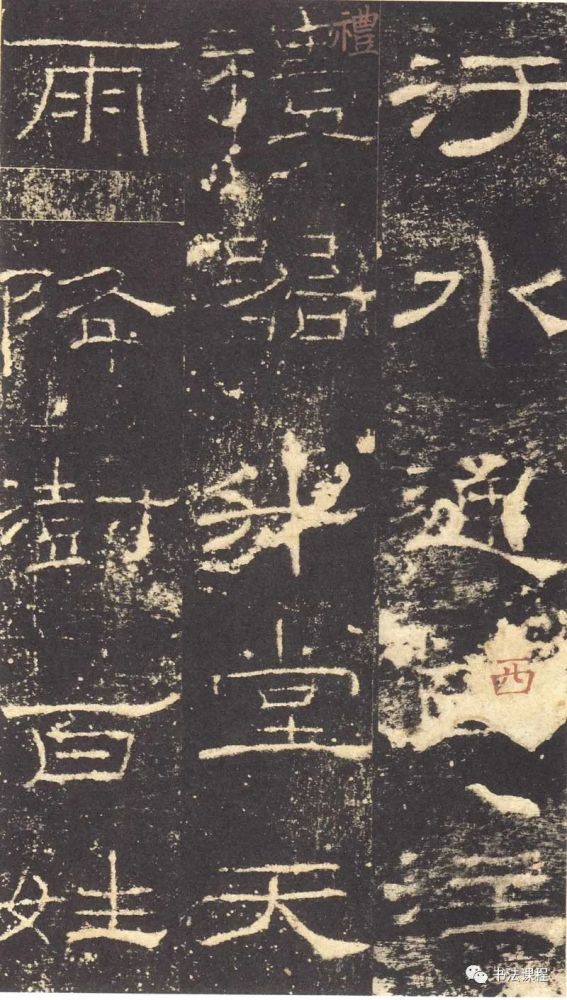 汙水通注
西
禮器升堂天
禮
雨降澍百姓
书法课程